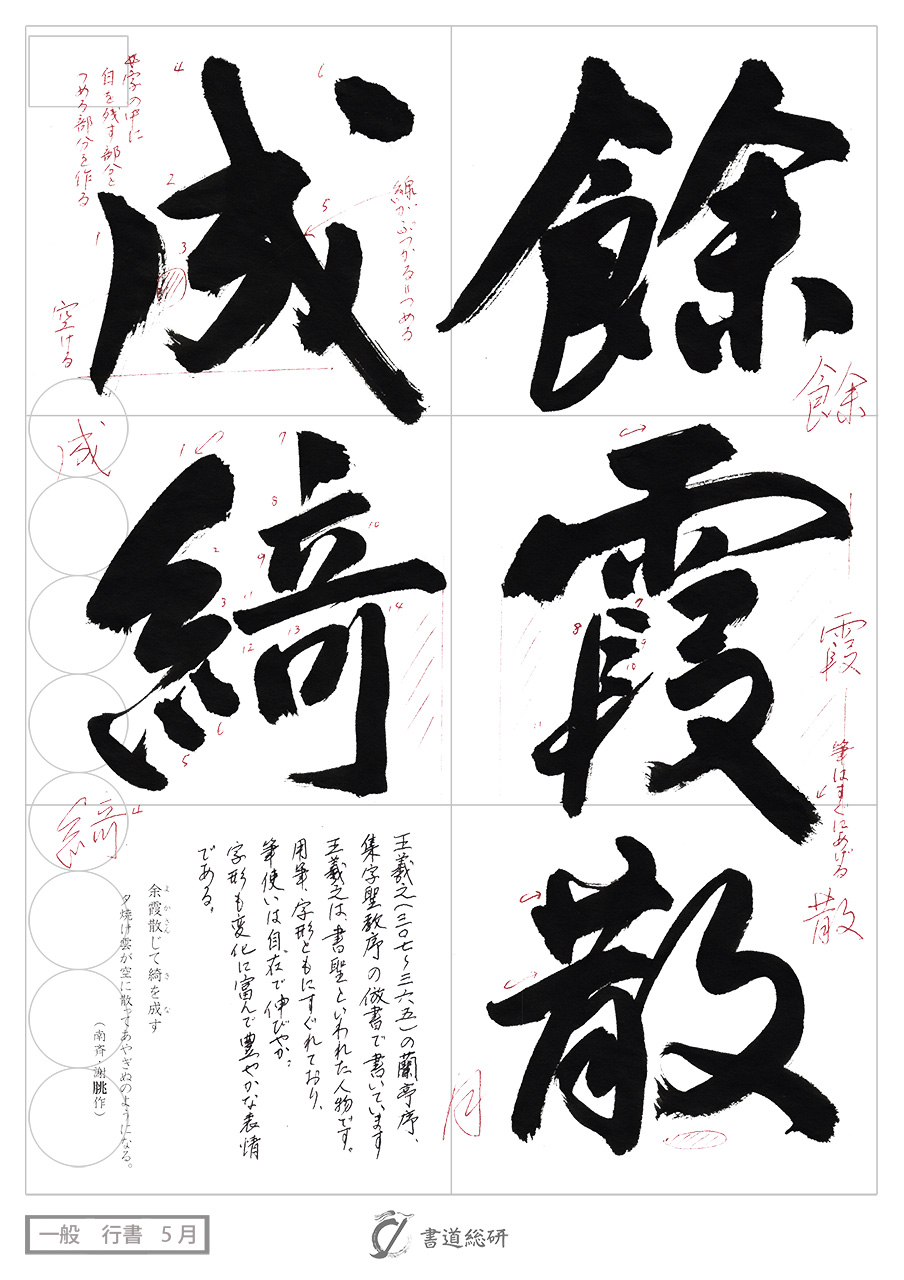 餘霞散
成綺
字の中に
白を残す部分と
つめる部分を作る
線がぶつかる＝つめる
空ける
餘
霞
筆はすぐにあげる
散
月
成
綺
王羲之(三〇七〜三六五)の蘭亭序、
集字聖教序の倣書で書いています
王羲之は書聖といわれた人物です。
用筆、字形ともにすぐれており、
筆使いは自在で伸びやか…
字形も変化に富んで豊やかな表情
である。
余霞散じて綺を成す
よかさん き な
夕焼け雲が空に散ってあやぎぬのようになる。
(南斉・謝朓作)
一般 行書 5月
書道総研